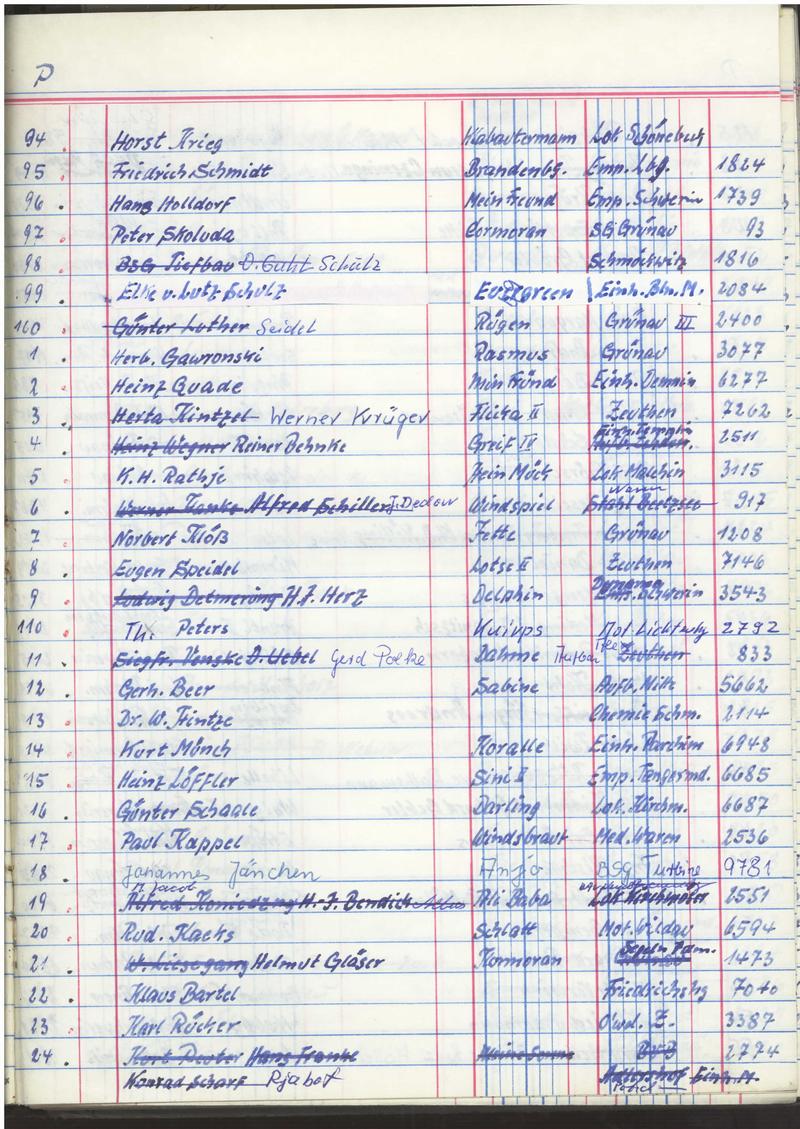 P
94 . Horst Krieg Klabautermann Lok Schönebeck
95 . Friedrich Schmidt Brandenbg. Emp. Lbg. 1824
96 . Hans Holldorf Mein Freund Emp. Schwerin 1739
97 . Peter Skoluda Cormoran SG Grünau 93
98 . BSG Tiefbau Schulz Schmöckwitz 1816
99 . Elke u. Lutz Schulz Evergreen Einh. Bln. M. 2084
100 Günter Luther Seidel Rügen Grünau III 2400
1 . Herb. Gawronski Rasmus Grünau 3077
2 . Heinz Quade Min Fründ Einh. Demmin 6277
3 . Herta Kintzel Werner Krüger Flicka II Zeuthen 7262
4 . Heinz Wegner Reiner Behnke Greif IV 2511
5 . K. H. Rathje Hein Mück Lok Malchin 3115
6 . Werner Alfred Schiller Windspiel Stahl 917
7 . Norbert Klöß Jette Grünau 1208
8 . Eugen Speidel Lotse II Zeuthen 7146
Dynamo
9 . Ludwig Detmering H. J. Herz Delphin Emp. Schwerin 3543
110 Th. Peters Kuivps 2792
11 . Siegfr. Venske D. Uebel Gerd Polke Dahme Zeuthen 833
12 . Gerh. Beer Sabine Aufb. Mitte 5662
13 . Dr. W. Trintze Chemie Schm. 2114
14 . Kurt Mönch Koralle Einh. Parchim 6948
15 . Heinz Löffler Sini II Emp. Tangermd. 6685
16 . Günter Schaale Darling Lok. Kirchm. 6687
17 . Paul Kappel Windsbraut Med. Waren 2536
18 . Johannes Jänchen Anja BSG Turbine 9781
M. Jacob
19 . Alfred H.-J. Bendich Ali Baba Lok Kirchmöser 2551
20 . Rud. Kacks Schlatt Mot. Wildau 6594
21 . W. Liesegang Helmut Gläser Kormoran 1473
22 . Klaus Bartel Friedrichshg 7040
23 . Karl Rücher 3387
24 . Kurt Hans Franke Meine Sonne 2774
Konrad Scharf Rjabot Adlershof Einh. M.